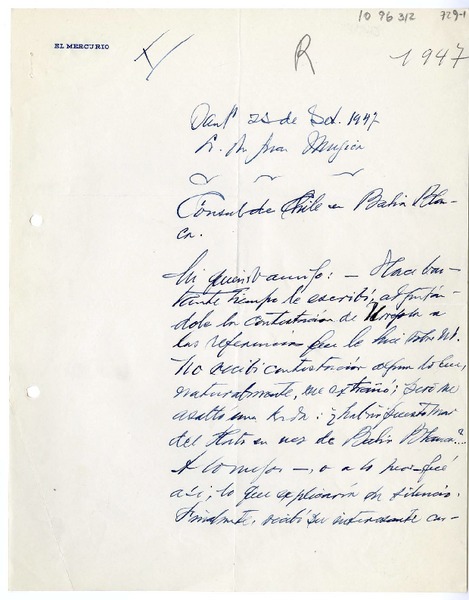 10 96 312 729-1
EL MERCURIO
R 1947
Sant 25 de Set. 1947
S. Dn Juan Mujica
Cónsul de Chile en Bahía Blan-
ca.
Mi querido amigo: — Hace bas-
tante tiempo le escribí, adjuntán-
dole la contestación de a
las referencias que le hice sobre Ud.
No recibí contestación alguna lo cual,
naturalmente, me extrañó; pero me
asaltó una duda: ¿habría puesto Mar
del Plata en vez de Bahía Blanca?
A lo mejor —, o a lo peor — fué
así; lo que explicaría su silencio.
Finalmente, recibí su interesante car-